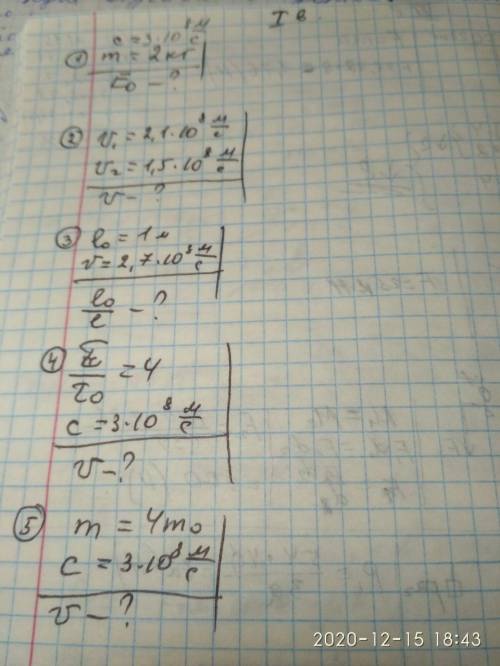 I в.
① c = 3·10⁸ м/с
m = 2 кг
E₀ - ?
② v₁ = 2,1·10⁸ м/с
v₂ = 1,5·10⁸ м/с
v - ?
③ l₀ = 1 м
v = 2,7·10⁸ м/с
l₀/l - ?
④ τ/τ₀ = 4
c = 3·10⁸ м/с
v - ?
⑤ m = 4m₀
c = 3·10⁸ м/с
v - ?
2020-12-15 18:43